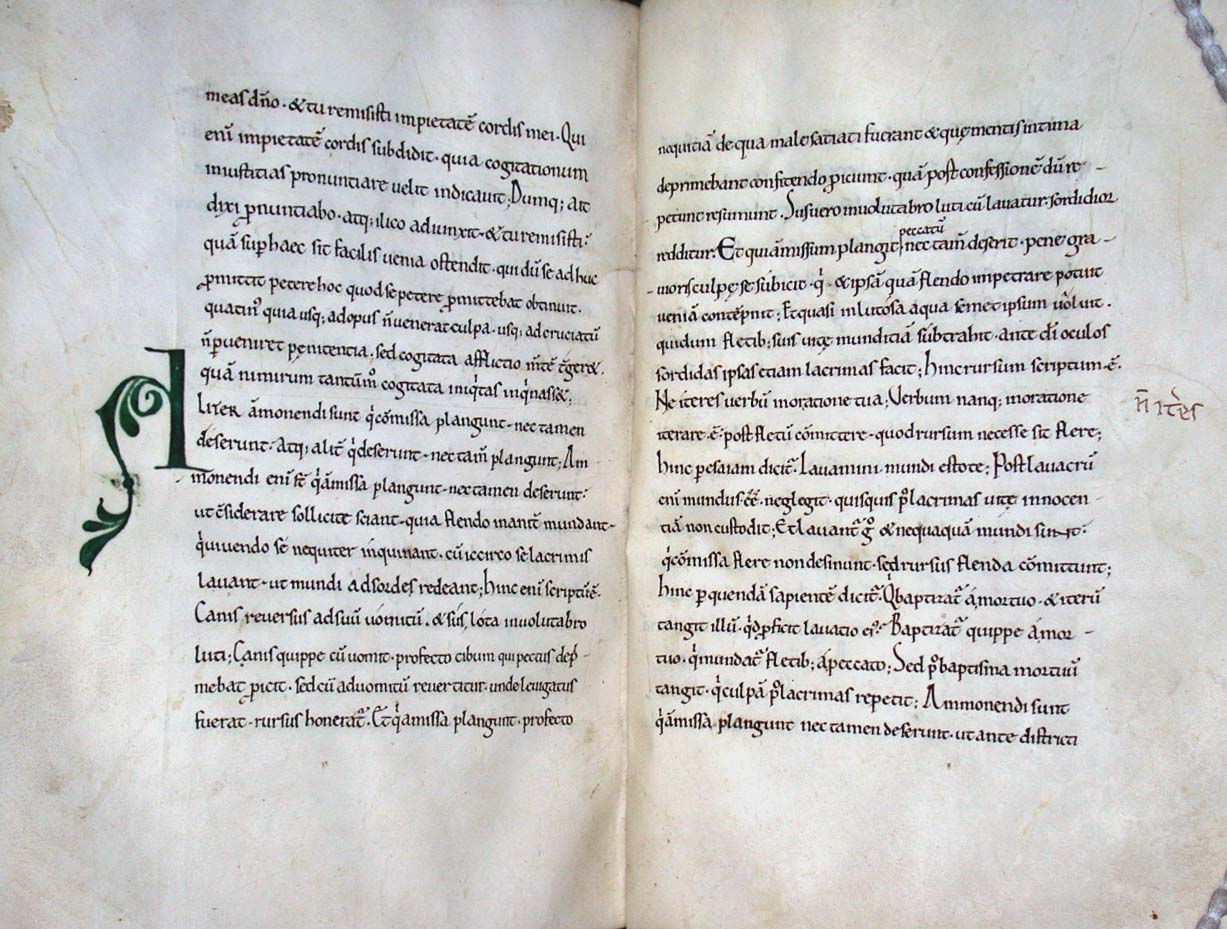 meas dn̄o · & tu remisisti impietatē cordis mei · Qui
enī impietatē cordis subdidit · quia cogitationum
iniustitias pronuntiare velit indicavit; Dumq; ait
dixi p̄nuntiabo · atq; ilico adiunxit · & tu remisisti:
quā sup haec sit facilis venia ostendit · qui dū se adhuc
p̄mittit petere hoc quod se petere p̄mittebat obtinuit.
quatin⁹ quia usq; ad opus n̄ venerat culpa · usq; ad cruciatū
n̄ pveniret penitentia; sed cogitata afflictio m̄tē t̄geret.
quā nimirum tantum̊ cogitata iniq̇tas inq̇nass&;
ALITER āmonendi sunt q̇ cōmissa plangunt · nec tamen
deserunt · atq; alit̄ q̇ deserunt · nec tam̄ plangunt; Am
monendi enī st̄ q̇ āmissa plangunt · nec tamen deserunt:
ut c̄siderare sollicite sciant · quia flendo inanit̄ mundant ·
q̇ vivendo se nequiter inquinant · cū iccirco se lacrimis
lavant · ut mundi ad sordes redeant; hinc enī scriptū ē·
Canis reversus ad suū vomitū · & sús lóta in volutabro
luti; Canis quippe cū vomit · profecto cibum qui pectus dep̄
mebat p̄icit · sed cū ad vomitū revertitur · unde levigatus
fuerat · rursus honerat̄· Et q̇ āmissa plangunt · profecto
nequitiā de qua male satiati fuerant & quę mentis intima
deprimebant confitendo p̄iciunt · quā post confessionē dū re
petunt resumunt · Sus vero in volutabro luti cū lavatur · sordidior
redditur · Et qui āmissum plangit peccatū nec tam̄ deserit · pene gra –
vioris culpę se subicit · q̇ & ipsā quā flendo impetrare potuit
veniā contēpnit; Et quasi in lutósa aqua semet ipsum v̊lvit ·
qui dum fletib; suis vitę munditiā subtrahit · ante dī oculos
sordidas ipsas etiam lacrimas facit; hinc rursum scriptum ē·
Ne iteres verbū in oratione tua; Verbum nanq; in oratione
iterare · ē· post fletū cōmittere · quod rursum necesse sit flere;
hinc p esaiam dicit̄· Lavamini · mundi estote; Post lavacrū
enī mundus · ēē· neglegit · quisquis p̊ lacrimas vitę innocen –
tiā non custodit; Et lavant̄ g̊ & nequaquā mundi sunt:
q̇ cōmissa flere non desinunt · sed rursus flenda cōmittunt;
hinc p quendā sapientē dicit̄· Q̇ baptizat̄ á mortuo · & iterū
tangit illū · q̇d p̄ficit lavatio ei⁹· Baptizat̄ quippe á mor –
tuo · q̇ mundat̄ fletib; á peccato; Sed p̊ baptisma mortuū
tangit · q̇ culpā p̊ lacrimas repetit; Ammonendi sunt
q̇ āmissa plangunt nec tamen deserunt · ut ante districti
n̄ it̄es